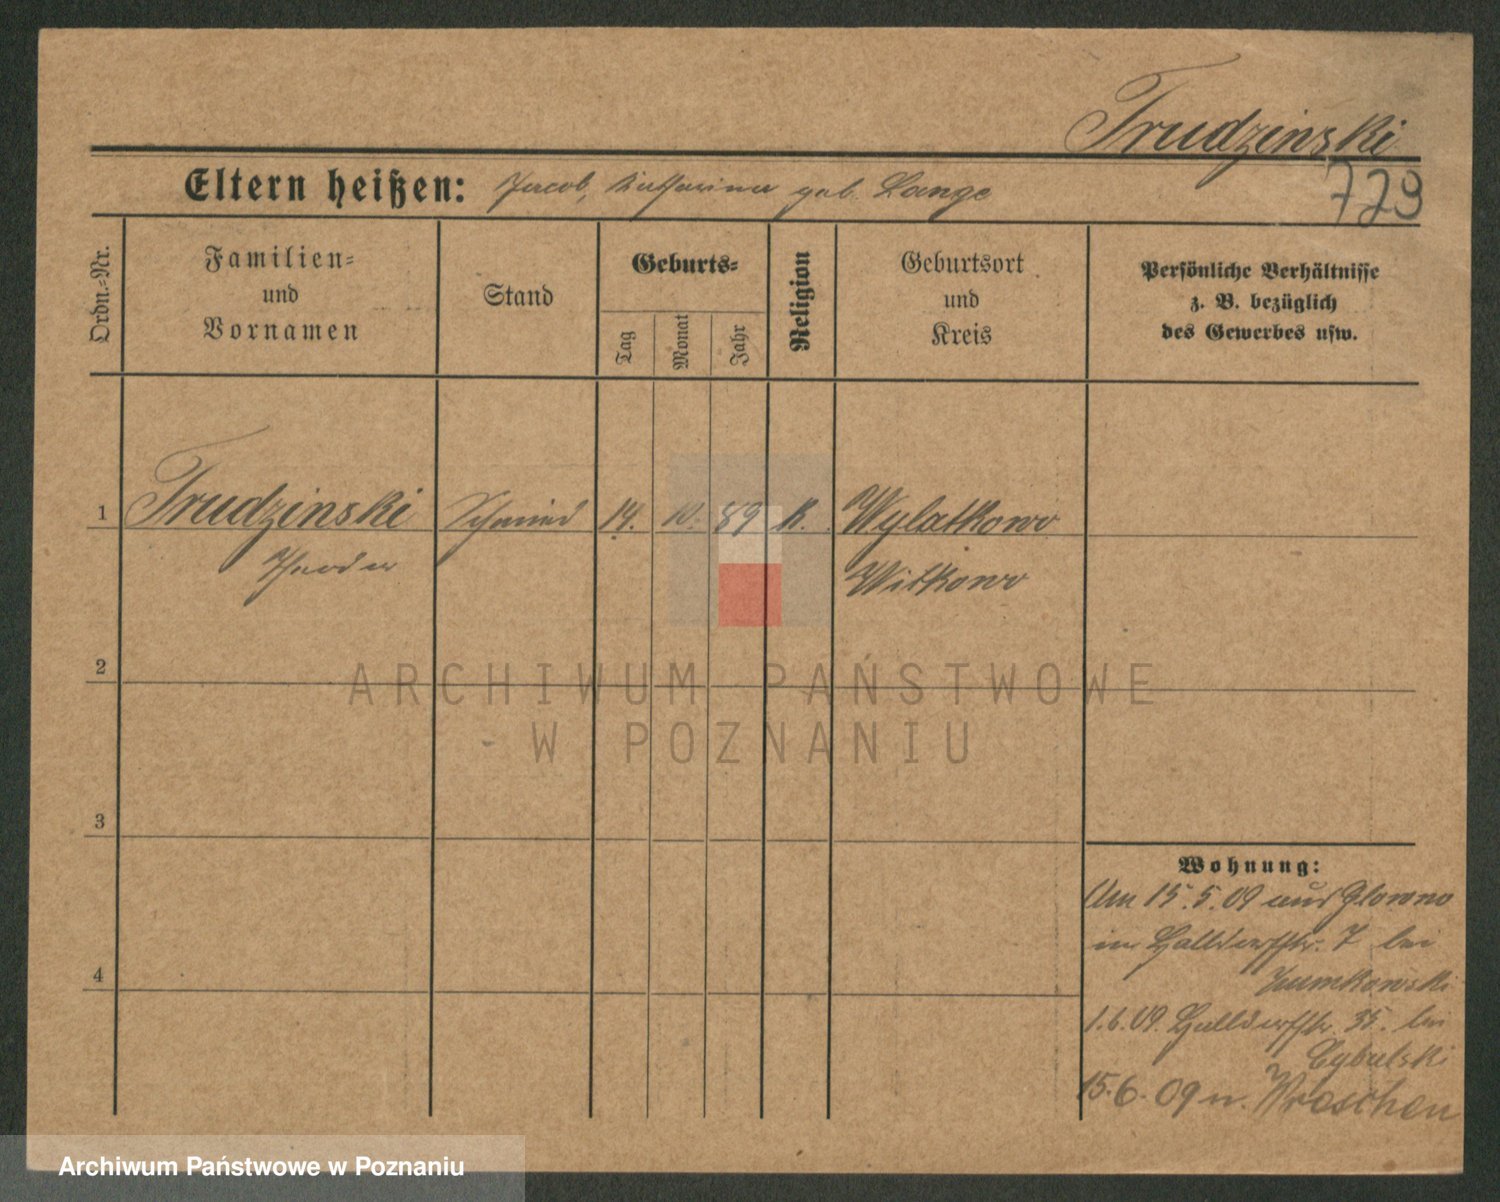 Trudzinski
729
Eltern heißen: Jacob, Katharina geb. Lange
Ordn.-Nr.
Familien-
und
Vornamen
Stand
Geburts-
Tag
Monat
Jahr
Religion
Geburtsort
und
Kreis
Persönliche Verhältnisse
z. B. bezüglich
des Gewerbes usw.
1 Trudzinski Schmied 14. 10. 89 K. Wylatkowo
Theodor Witkowo
2
3
4
Wohnung:
Am 15.5.09 aus Glowno
in Halldorfstr. 7 bei
1.6.09. Halldorfstr. 35. bei
Cybulski
15.6.09 n. Wreschen
ARCHIWUM PAŃSTWOWE
W POZNANIU
Archiwum Państwowe w Poznaniu